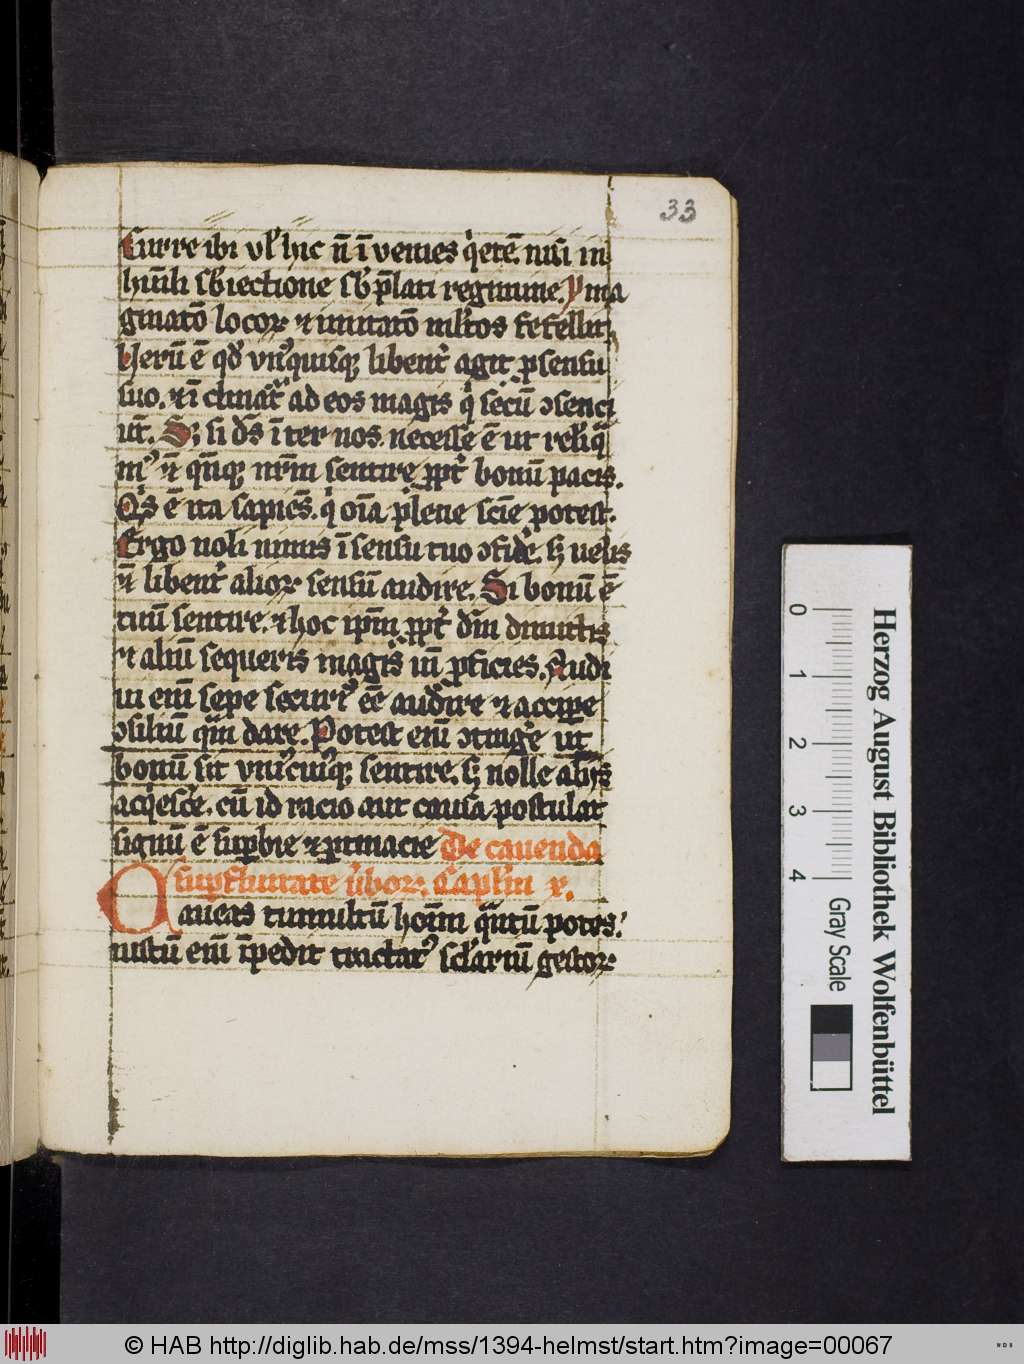 33
Curre ibi vl' hic n̄ ī venies q̇etē. nisi in
hūili sb'iectione sb' p̄lati regimine. yma
ginatō locoꝝ ⁊ mutatō ml'tos fefellit
Uerū ē qd' vnꝰquisqꝫ libent' agit ꝓ sensu
suo. ⁊ ī clinat' ad eos magis q' secū ↄsenci
ūt. Sꝫ si d's īter nos necesse ē ut relīq
mꝰ ⁊ qn̄qꝫ nr̄m sentire ꝓpt' bonū pacis.
Q's ē ita sapiēs. q' oīa plene scīe potest.
Ergo noli nimis ī sensu tuo ↄfid'e. sꝫ uelis
⁊ libent' alioꝝ sensū audire. Si bonū ē
tuū sentire. ⁊ hoc ip̄m ꝓpt' dm̄ dimittis
⁊ aliū sequeris magis in̄ ꝓficies. Audi
ui enī sepe securiꝰ eē audire ⁊ accipe
ↄsiliū qm̄ dare. Potest enī ↄting'e ut
bonū sit vniꝰcuiꝰqꝫ sentire. sꝫ nolle alijs
acq̇esc'e. cū id racio aut causa postulat
signū ē supbie ⁊ ꝑtinacie De cauenda
supfluitate ūboꝝ. Capl'm x.
Caueas tumultū hoīm qn̄tū potes.
multū enī īpedit tractatꝰ sc'lariū gestoꝝ
Herzog August Bibliothek Wolfenbüttel
0 1 2 3 4 Gray Scale
© HAB http://diglib.hab.de/mss/1394-helmst/start.htm?image=00067